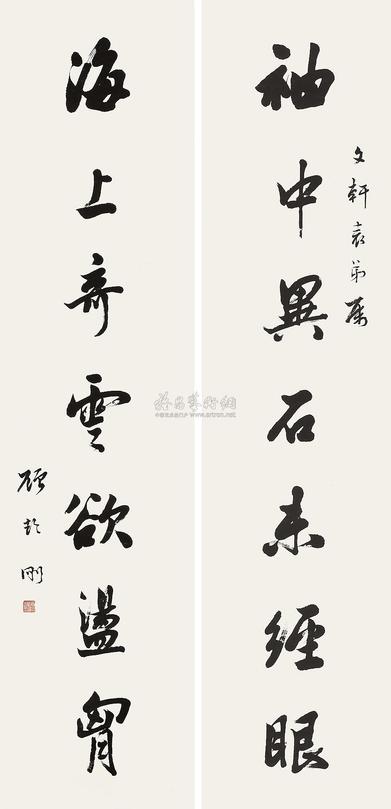 文軒表弟屬
袖中異石未經眼
海上奇雲欲盪胷
顧頡剛
雅昌藝術網
www.artron.net